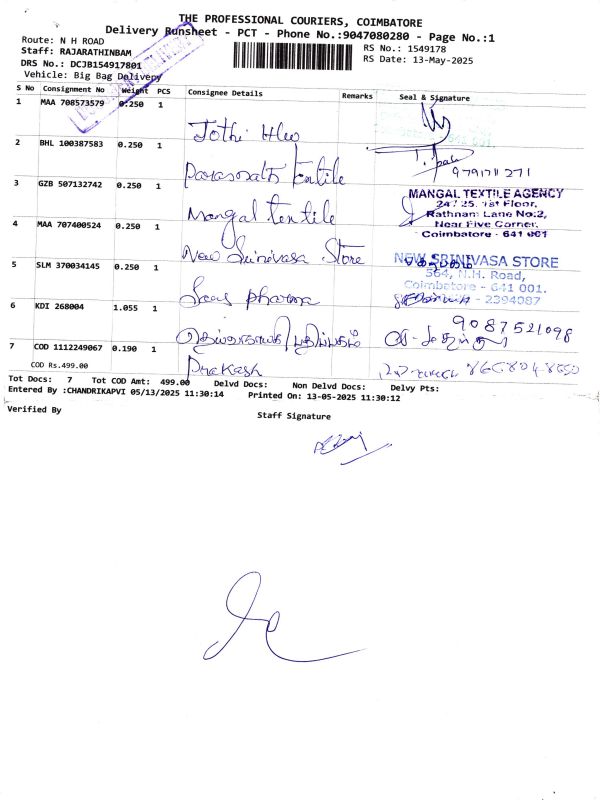 THE PROFESSIONAL COURIERS, COIMBATORE
Delivery Runsheet - PCT - Phone No.:9047080280 - Page No.:1
Route: N H ROAD
RS No.: 1549178
Staff: RAJARATHINBAM
RS Date: 13-May-2025
DRS No.: DCJB154917801
Vehicle: Big Bag Delivery
S No Consignment No Weight PCS Consignee Details Remarks Seal & Signature
1 MAA 708573579 0.250 1
Jothi
2 BHL 100387583 0.250 1
9791711271
Parasnath Textile
3 GZB 507132742 0.250 1
MANGAL TEXTILE AGENCY
24 / 25, 1st Floor,
Rathnam Lane No:2,
Near Five Corner,
Coimbatore - 641 001
Mangal textile
4 MAA 707400524 0.250 1
New Srinivasa Store
NEW SRINIVASA STORE
564, N.H. Road,
Coimbatore - 641 001.
2394087
5 SLM 370034145 0.250 1
Pharma
6 KDI 268004 1.055 1
9087521098
7 COD 1112249067 0.190 1
Prakash
COD Rs.499.00
Tot Docs: 7 Tot COD Amt: 499.00 Delvd Docs: Non Delvd Docs: Delvy Pts:
Entered By :CHANDRIKAPVI 05/13/2025 11:30:14 Printed On: 13-05-2025 11:30:12
Verified By
Staff Signature